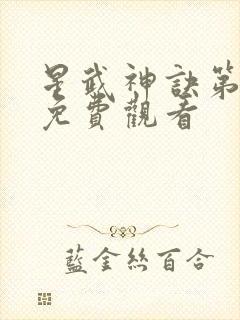 星武神訣第
免費觀看
藍金絲百合